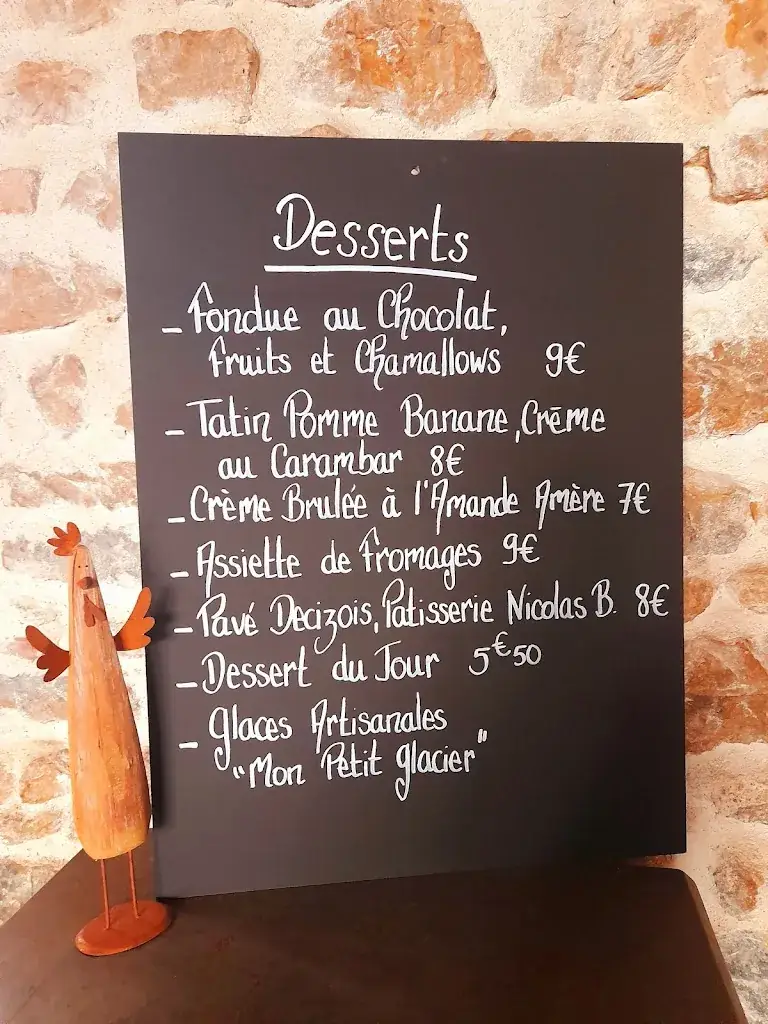 Desserts
- Fondue au Chocolat,
Fruits et Chamallows 9€
- Tatin Pomme Banane, Crème
au Carambar 8€
- Crème Brulée à l'Amande Amère 7€
- Assiette de Fromages 9€
- Pavé Decizois, Patisserie Nicolas B. 8€
- Dessert du Jour 5€50
- Glaces Artisanales
"Mon Petit Glacier"